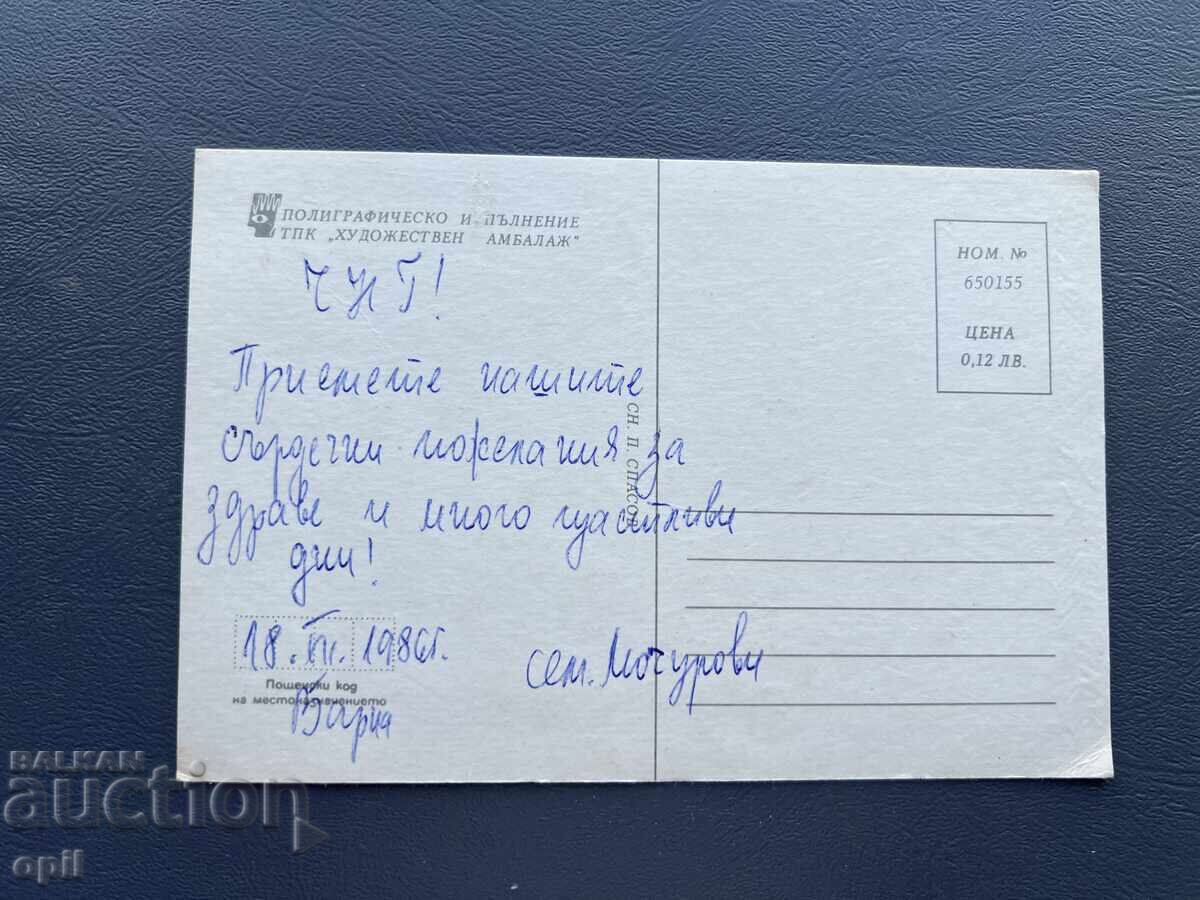 ПОЛИГРАФИЧЕСКО И ПЪЛНЕНИЕ
ТПК „ХУДОЖЕСТВЕН АМБАЛАЖ"
ЧНГ!
Приемете нашите
сърдечни пожелания за
здраве и много щастливи
дни!
18. XII. 1986г.
Пощенски код
на местоназначението
Варна
сем. Мочурови
СН. П. СПАСОВ
НОМ. №
650155
ЦЕНА
0,12 ЛВ.
BALKAN
auction
opil